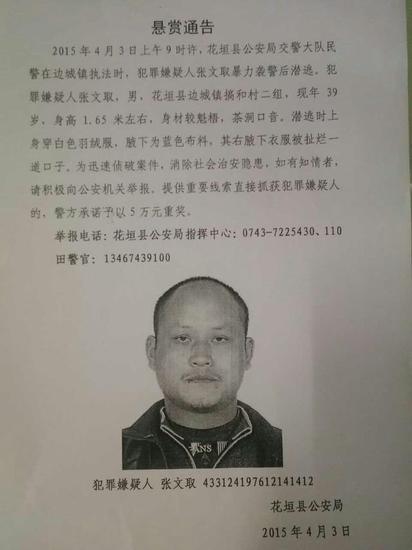 悬赏通告
2015年4月3日上午9时许，花垣县公安局交警大队民
警在边城镇执法时，犯罪嫌疑人张文取暴力袭警后潜逃。犯
罪嫌疑人张文取，男，花垣县边城镇摛和村二组，现年39
岁，身高1.65米左右，身材较魁梧，茶洞口音。潜逃时上
身穿白色羽绒服，腋下为蓝色布料，其右腋下衣服被扯烂一
道口子。为迅速侦破案件，消除社会治安隐患，如有知情者，
请积极向公安机关举报。提供重要线索直接抓获犯罪嫌疑人
的，警方承诺予以5万元重奖。
举报电话：花垣县公安局指挥中心：0743-7225430、110
田警官：13467439100
ANS
犯罪嫌疑人 张文取 433124197612141412
花垣县公安局
2015年4月3日